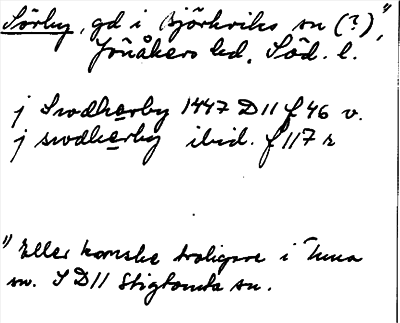 Sörby, gd i Björkviks sn (?),¹⁾
Jönåkers hd, Söd. l.
j Swdherby 1447 D11 f 46 v.
j swdherby ibid. f 117 r
¹⁾ Eller kanske troligare i Tuna
sn. I D11 Stigtomta sn.